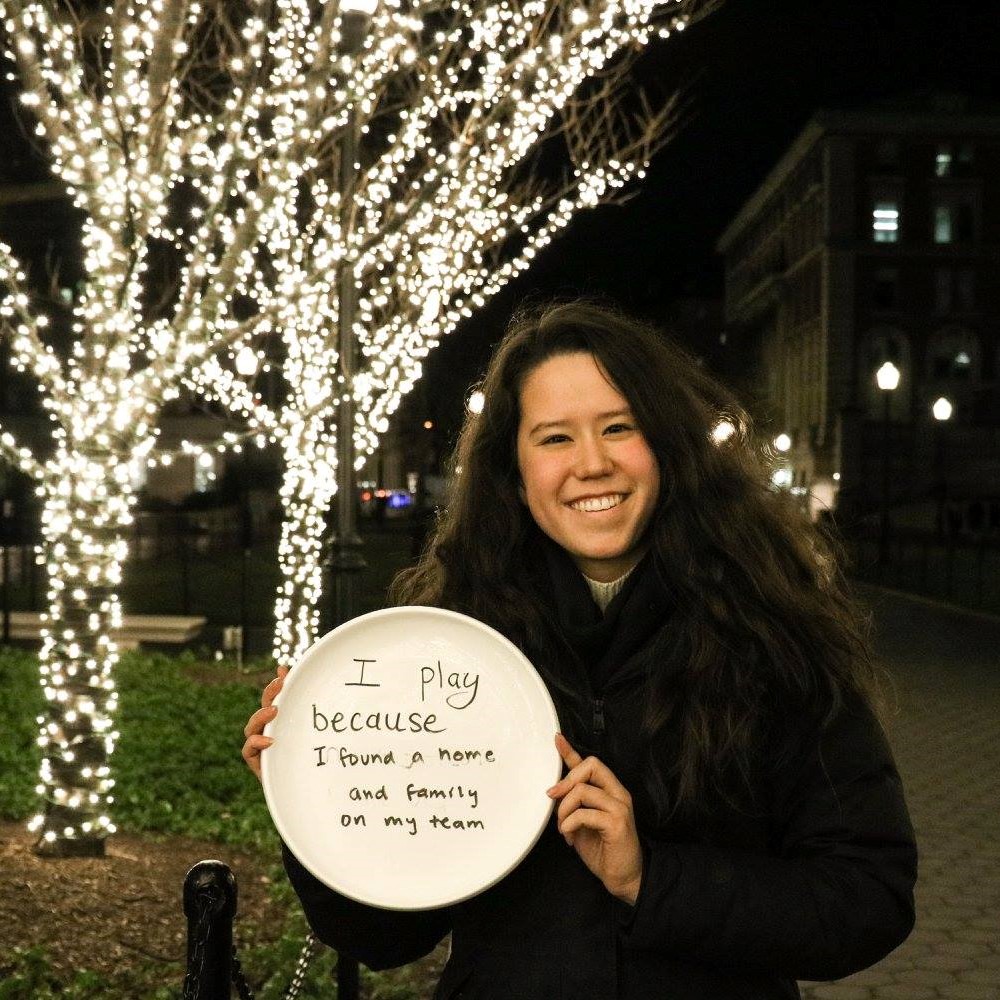 I play
because
I found a home
and family
on my team